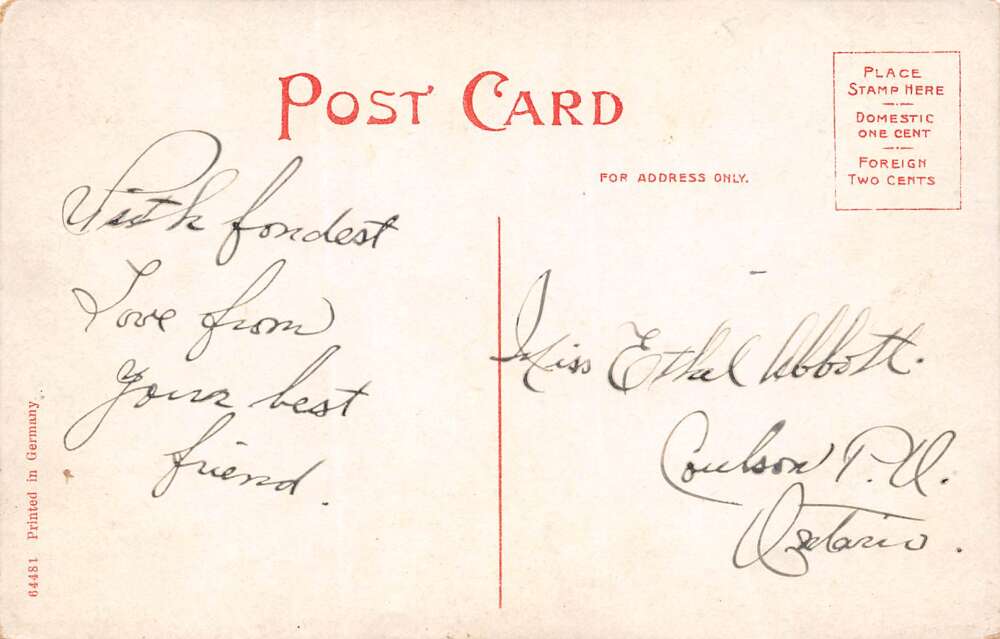 POST CARD
PLACE
STAMP HERE
DOMESTIC
ONE CENT
FOREIGN
TWO CENTS
FOR ADDRESS ONLY.
With fondest
Love from
your best
friend.
Miss Ethel Abbott.
Coulson P.O.
Ontario.
64481 Printed in Germany.